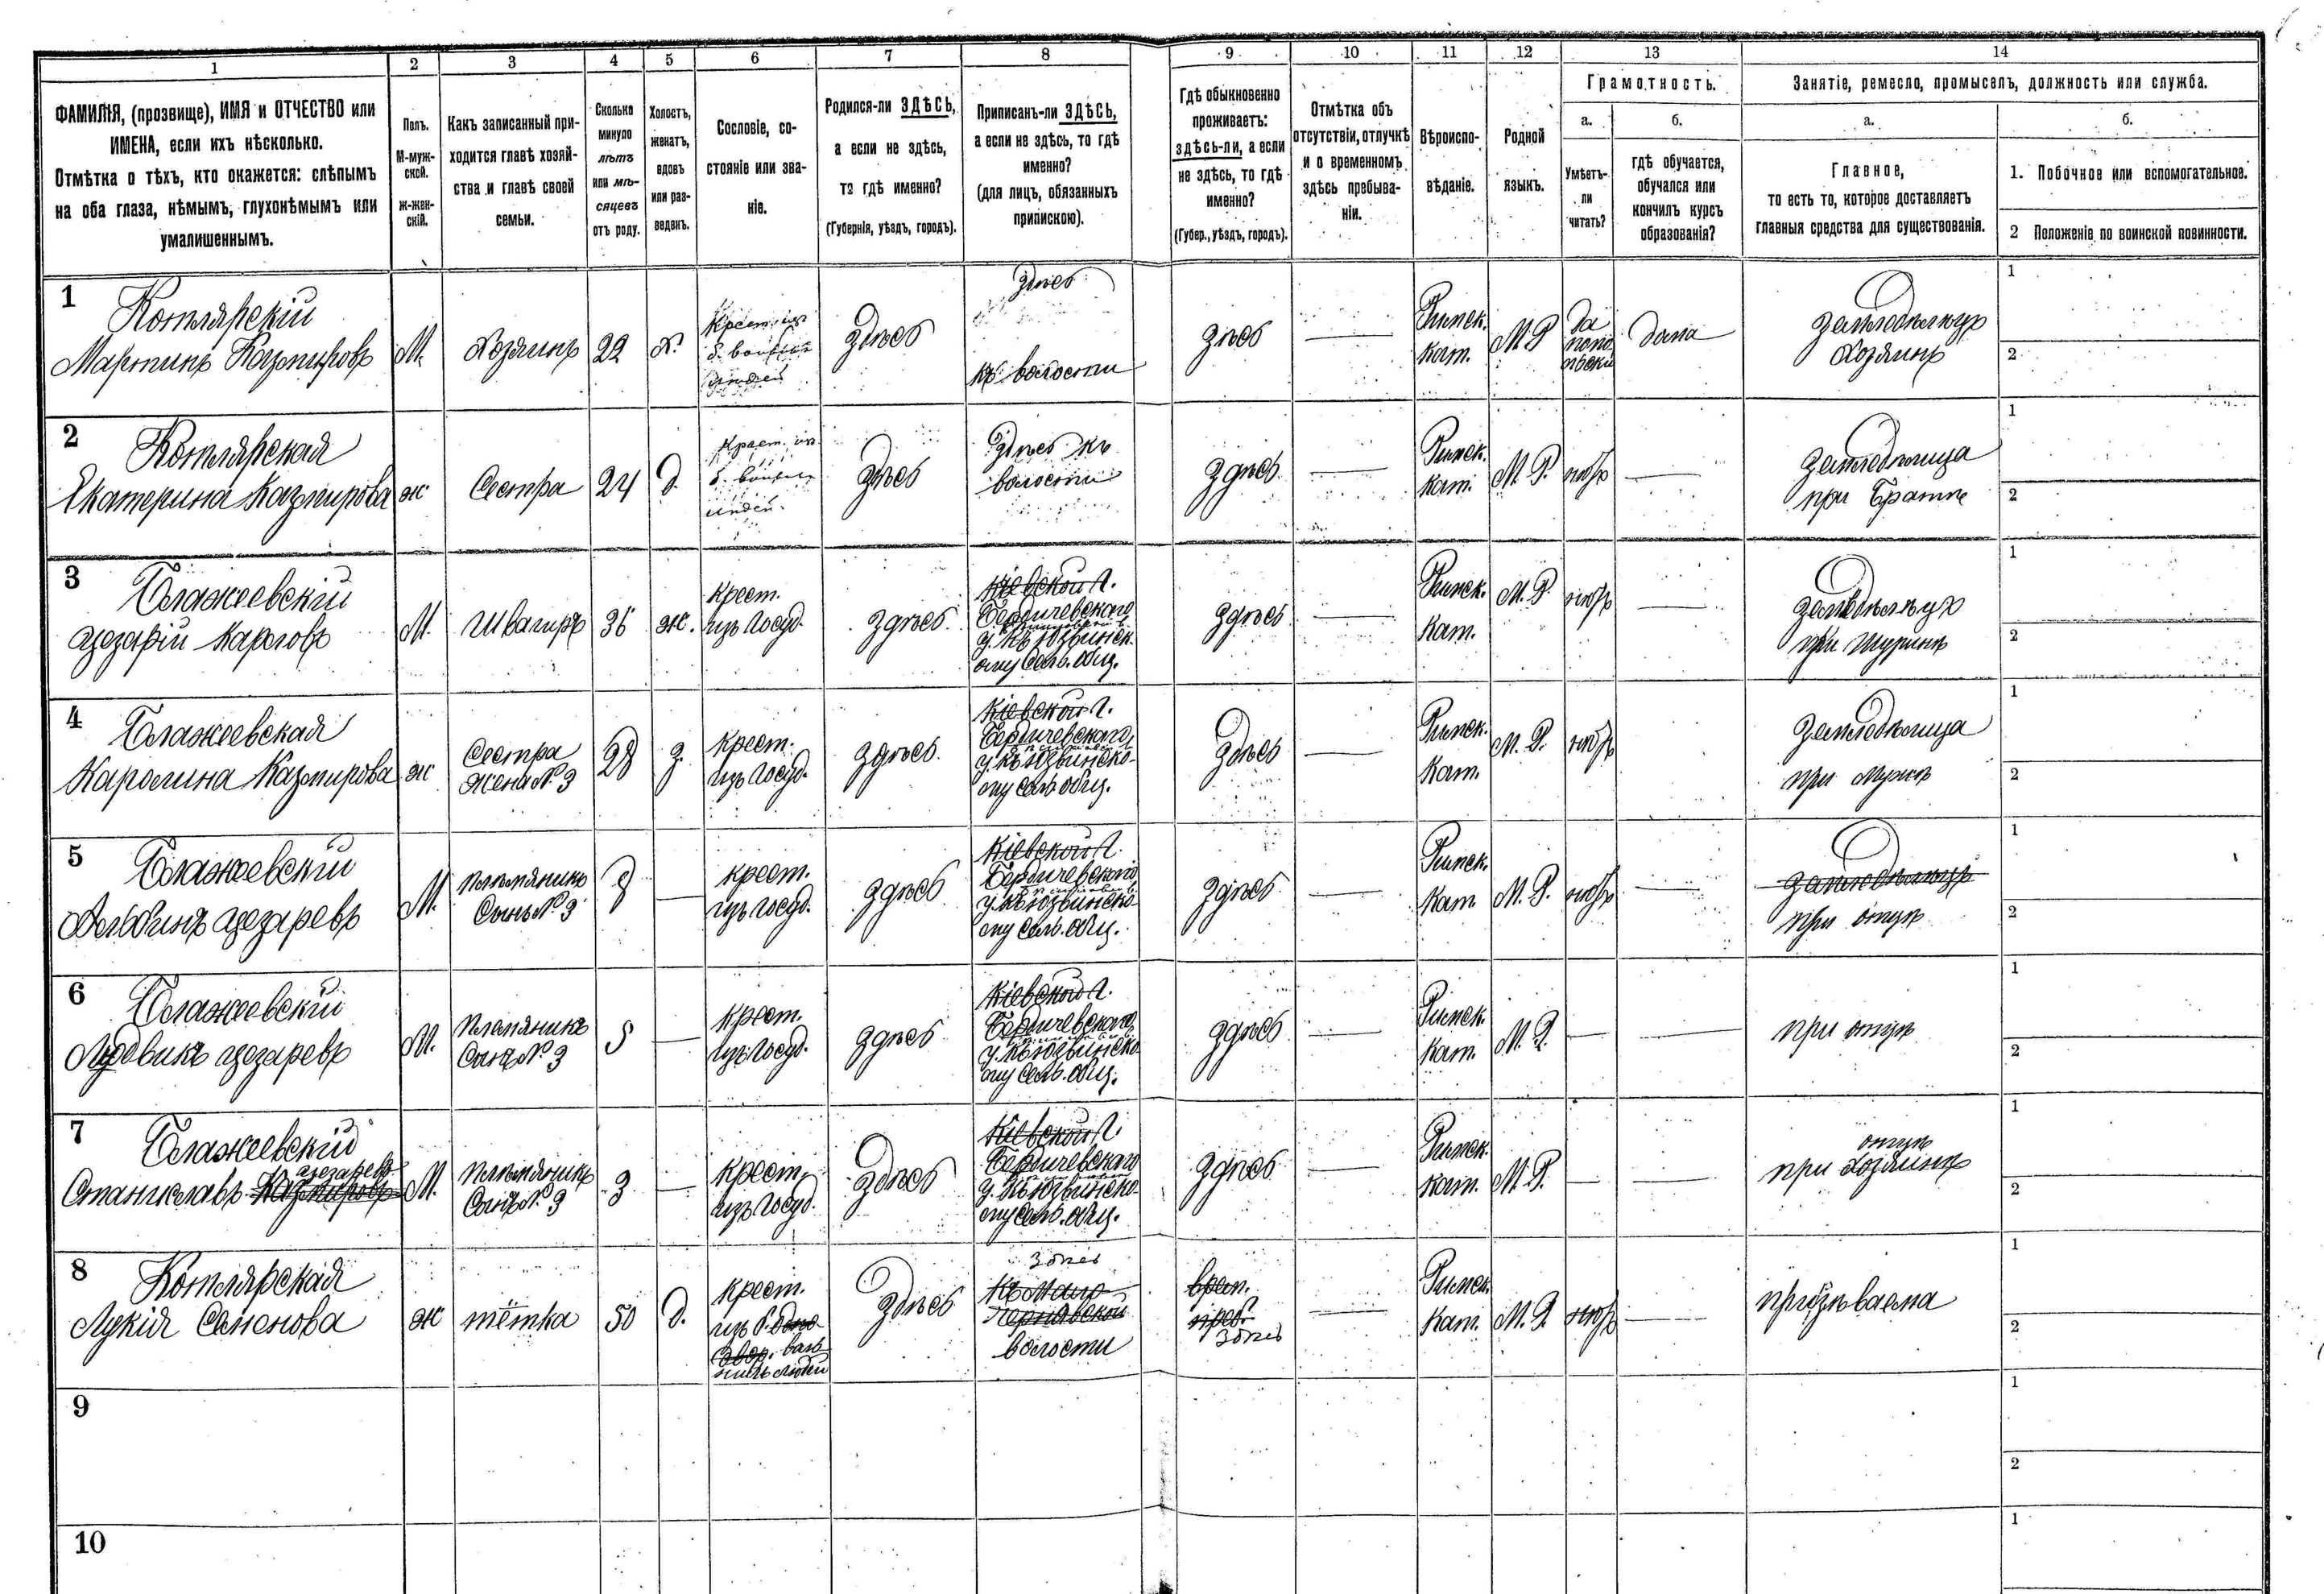 1 2 3 4 5 6 7 8 9 10 11 12 13 14
ФАМИЛІЯ, (прозвище), ИМЯ и ОТЧЕСТВО или
ИМЕНА, если ихъ нѣсколько.
Отмѣтка о тѣхъ, кто окажется: слѣпымъ
на оба глаза, нѣмымъ, глухонѣмымъ или
умалишеннымъ.
Полъ.
М-муж-
ской.
ж-жен-
скій.
Какъ записанный при-
ходится главѣ хозяй-
ства и главѣ своей
семьи.
Сколько
минуло
лѣтъ
или мѣ-
сяцевъ
отъ роду.
Холостъ,
женатъ,
вдовъ
или раз-
веденъ.
Сословіе, со-
стояніе или зва-
ніе.
Родился-ли ЗДѢСЬ,
а если не здѣсь,
то гдѣ именно?
(Губернія, уѣздъ, городъ).
Приписанъ-ли ЗДѢСЬ,
а если не здѣсь, то гдѣ
именно?
(для лицъ, обязанныхъ
припискою).
Гдѣ обыкновенно
проживаетъ:
здѣсь-ли, а если
не здѣсь, то гдѣ
именно?
(Губер., уѣздъ, городъ).
Отмѣтка объ
отсутствіи, отлучкѣ
и о временномъ
здѣсь пребыва-
ніи.
Вѣроиспо-
вѣданіе.
Родной
языкъ.
Грамотность.
а.
Умѣетъ-
ли
читать?
б.
гдѣ обучается,
обучался или
кончилъ курсъ
образованія?
Занятіе, ремесло, промыселъ, должность или служба.
а.
Главное,
то есть то, которое доставляетъ
главныя средства для существованія.
б.
1. Побочное или вспомогательное.
2 Положеніе по воинской повинности.
1
Котлярскій
Мартинъ Казмировъ
М.
Хозяинъ
22
Х.
Крест. изъ
б.
людей
здѣсь
здѣсь
къ волости
здѣсь
Римск.
Кат.
М Р
да
дома
земледѣлецъ
Хозяинъ
1
2
2
Котлярская
Екатерина Казмирова
ж
Сестра
24
д.
Крест. изъ
б.
людей.
здѣсь
здѣсь къ
волости
здѣсь
Римск.
Кат.
М. Р.
нѣтъ
земледѣлица
при братѣ
1
2
3
Блажеевскій
Цезарій Карловъ
М.
Швагиръ
36
ж.
Крест.
изъ Госуд.
здѣсь
Кіевской Г.
Бердичевского
у. къ Юзвинск.
ому Сель. общ.
здѣсь
Римск.
Кат.
М. Р.
нѣтъ
земледѣлецъ
при Шуринѣ
1
2
4
Блажеевская
Каролина Казмирова
ж
Сестра
жена № 3
28
з.
Крест.
изъ Госуд.
здѣсь
Кіевской Г.
Бердичевского
у. къ Юзвинско-
му Сель. общ.
здѣсь
Римск.
Кат.
М. Р.
нѣтъ
земледѣлица
при мужѣ
1
2
5
Блажеевскій
Альбинъ Цезаревъ
М.
племяникъ
Сынъ № 3
8
Крест.
изъ Госуд.
здѣсь
Кіевской Г.
Бердичевского
у. къ Юзвинско-
му Сель. общ.
здѣсь
Римск.
Кат
М. Р.
нѣтъ
земледѣлецъ
при отцѣ
1
2
6
Блажеевскій
Людвикъ Цезаревъ
М.
племяникъ
Сынъ № 3
5
Крест.
изъ Госуд.
здѣсь
Кіевской Г.
Бердичевского
у. къ Юзвинско
му Сель. общ.
здѣсь
Римск.
Кат.
М. Р.
при отцѣ
1
2
7
Блажеевскій
Цезаревъ
Станиславъ Казмировъ
М.
племяникъ
Сынъ № 3
3
Крест.
изъ Госуд.
здѣсь
Кіевской Г.
Бердичевского
у. къ Юзвинско-
му Сель. общ.
здѣсь
Римск.
Кат.
М. Р.
отцѣ
при Хозяинѣ
1
2
8
Котлярская
Лукія Семенова
ж
тётка
50
д.
Крест.
изъ б.
людей
здѣсь
здѣсь
волости
врем.
здѣсь
Римск.
Кат.
М. Р.
нѣтъ
призѣваема
1
2
9
1
2
10
1